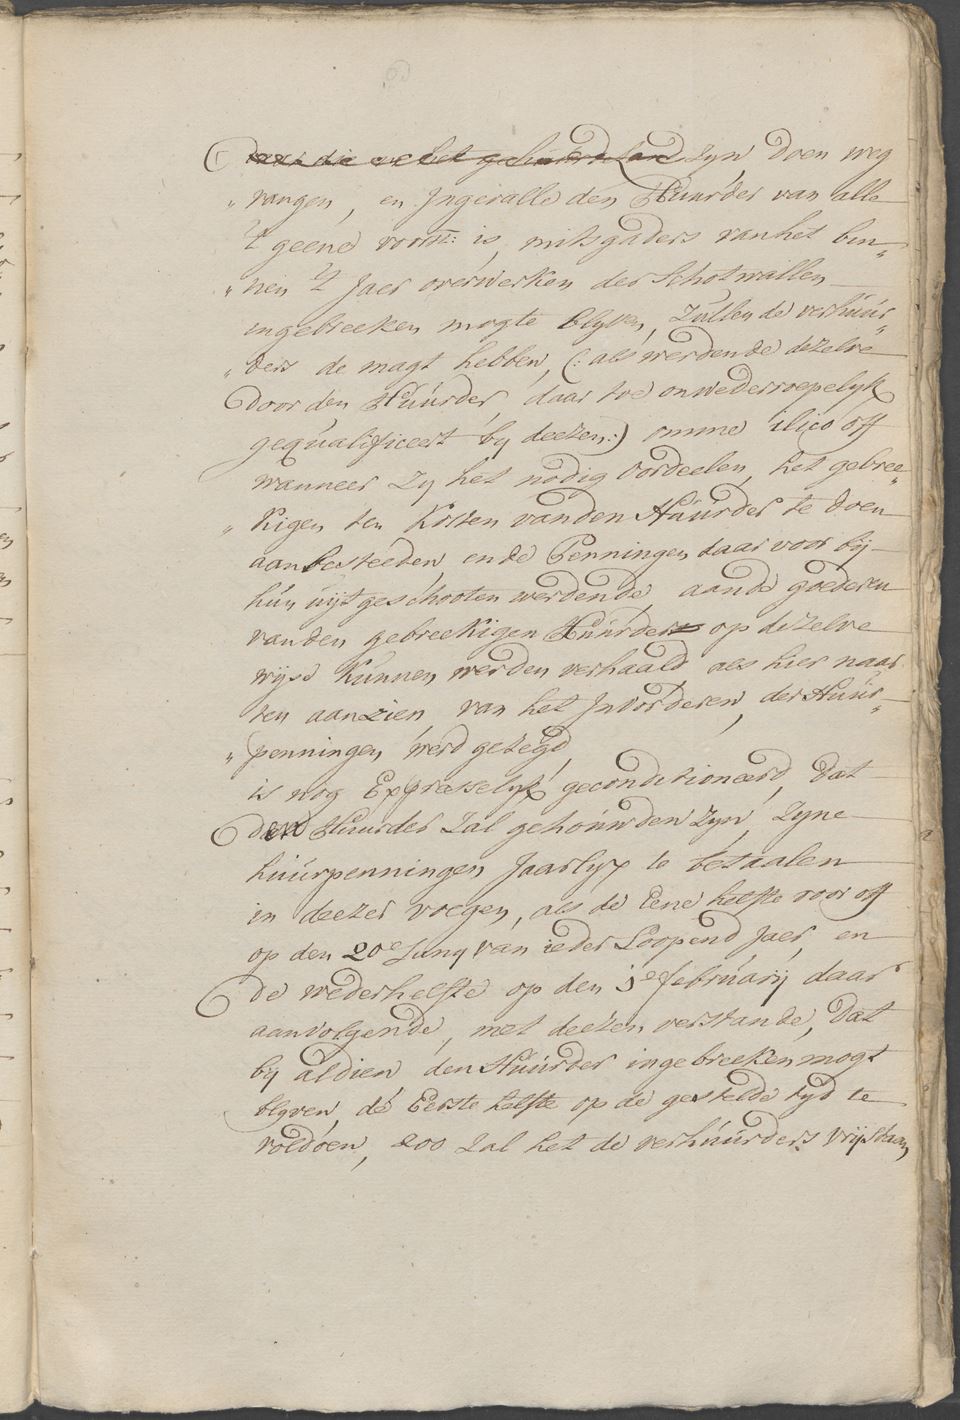 zyn, doen weg
„ vangen, en Jngevalle den Huurder van alle
't geene voorsz: is, mitsgaders van het bin„
„ nen 't Jaer overwerken der Schotwallen
ingebreeken mogte blyven, Zullen de verhuur„
„ ders de magt hebben, (: als werdende dezelve
door den Huurder, daar toe onwederroepelyk
gequalificeert by deezen:) omme ilico off
wanneer Zy het nodig oordeelen, het gebree„
„ kigen ten Kosten van den Huurder te doen
aanbesteeden en de Penningen daar voor by
hun uijtgeschooten werdende, aan de goederen
van den gebreekigen Huurder op dezelve
wyse kunnen werden verhaald als hier naar
ten aanzien, van het Jnvorderen, der Huur„
„ penningen, werd gezegd,
is nog Expresselyk geconditioneerd, dat
den Huurder Zal gehouwden zyn, Zyne
huurpenningen Jaarlyx te betaalen
in deezer voegen, als de Eene helfte voor off
op den 20e Juny van ieder Loopend Jaer, en
de wederhelfte op den 1e february daar
aanvolgende, met deezen verstande, dat
by aldien den Huurder ingebreeken mogt
blyven, de Eerste helfte op de gestelde tyd te
voldoen, zoo Zal het de verhuurders vrijstaan,